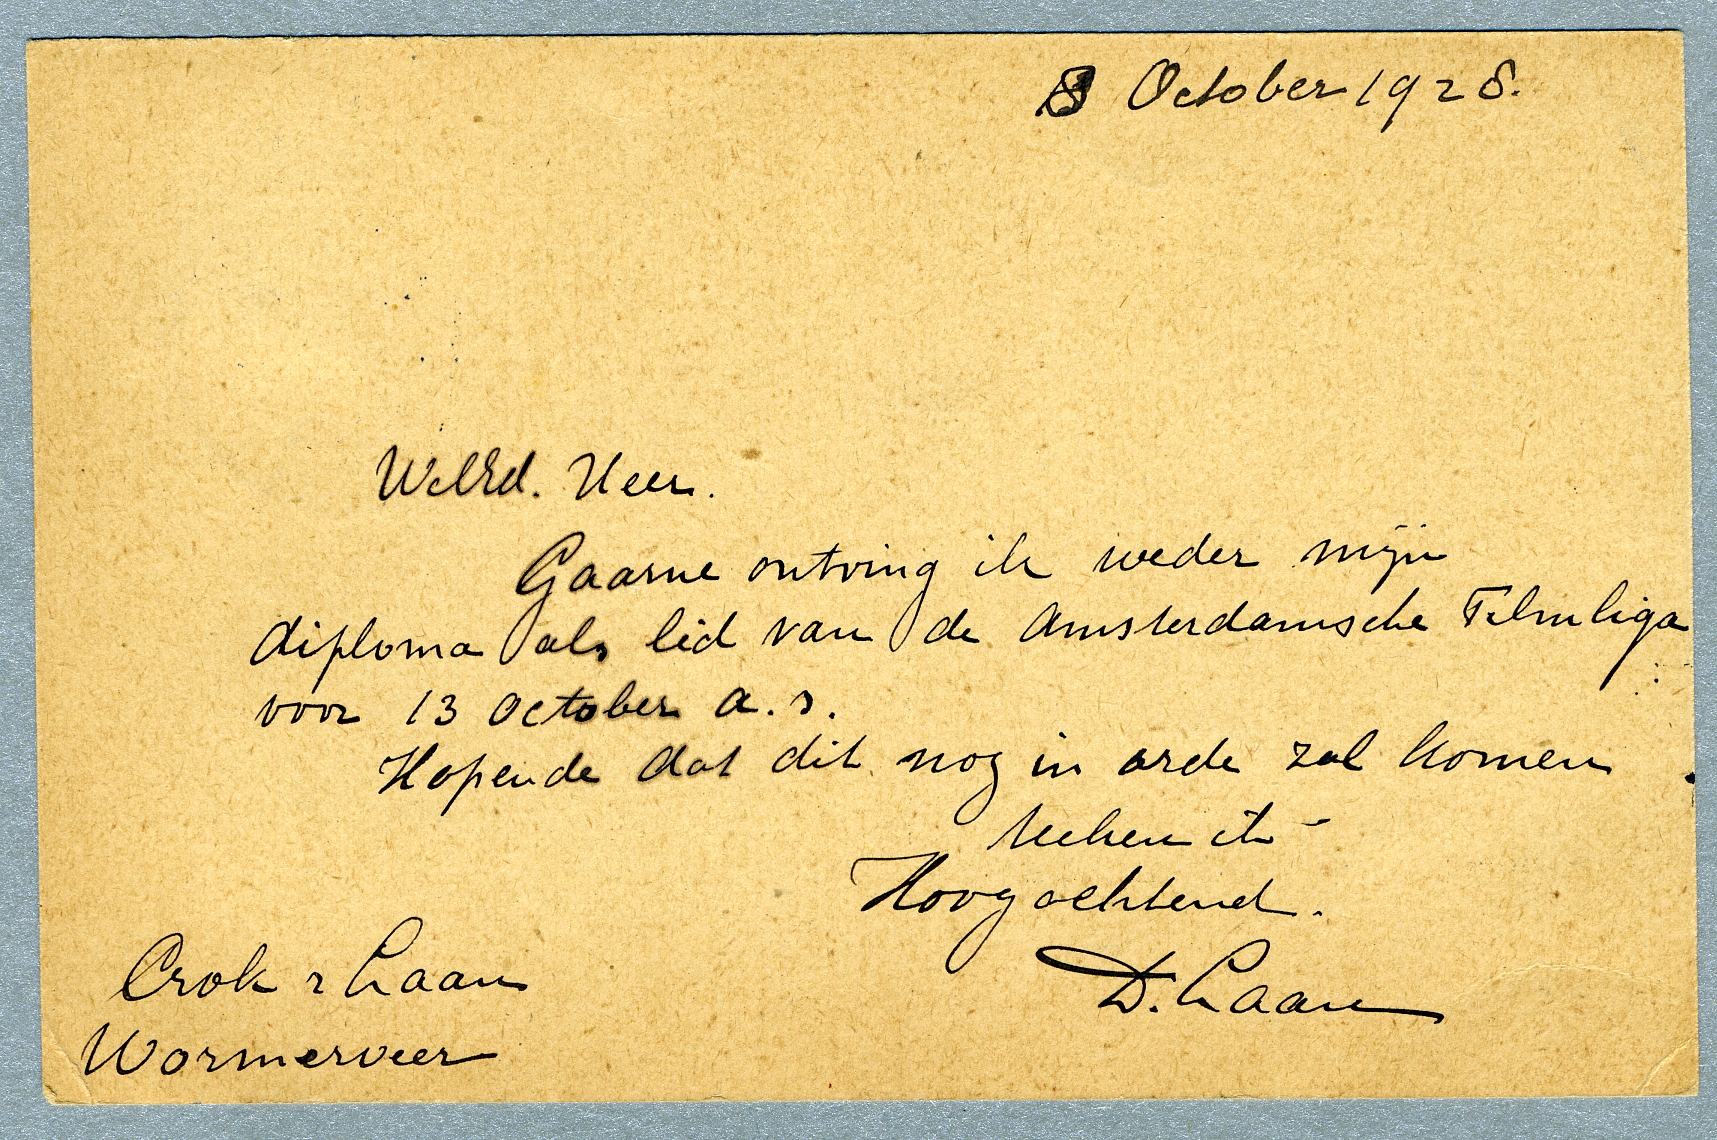 8 October 1928.
WelEd. Heer.
Gaarne ontving ik weder mijn
diploma als lid van de Amsterdamsche Filmliga
voor 13 October a.s.
Hopende dat dit nog in orde zal komen
teken ik
Hoogachtend.
D. Laan
Crok & Laan
Wormerveer